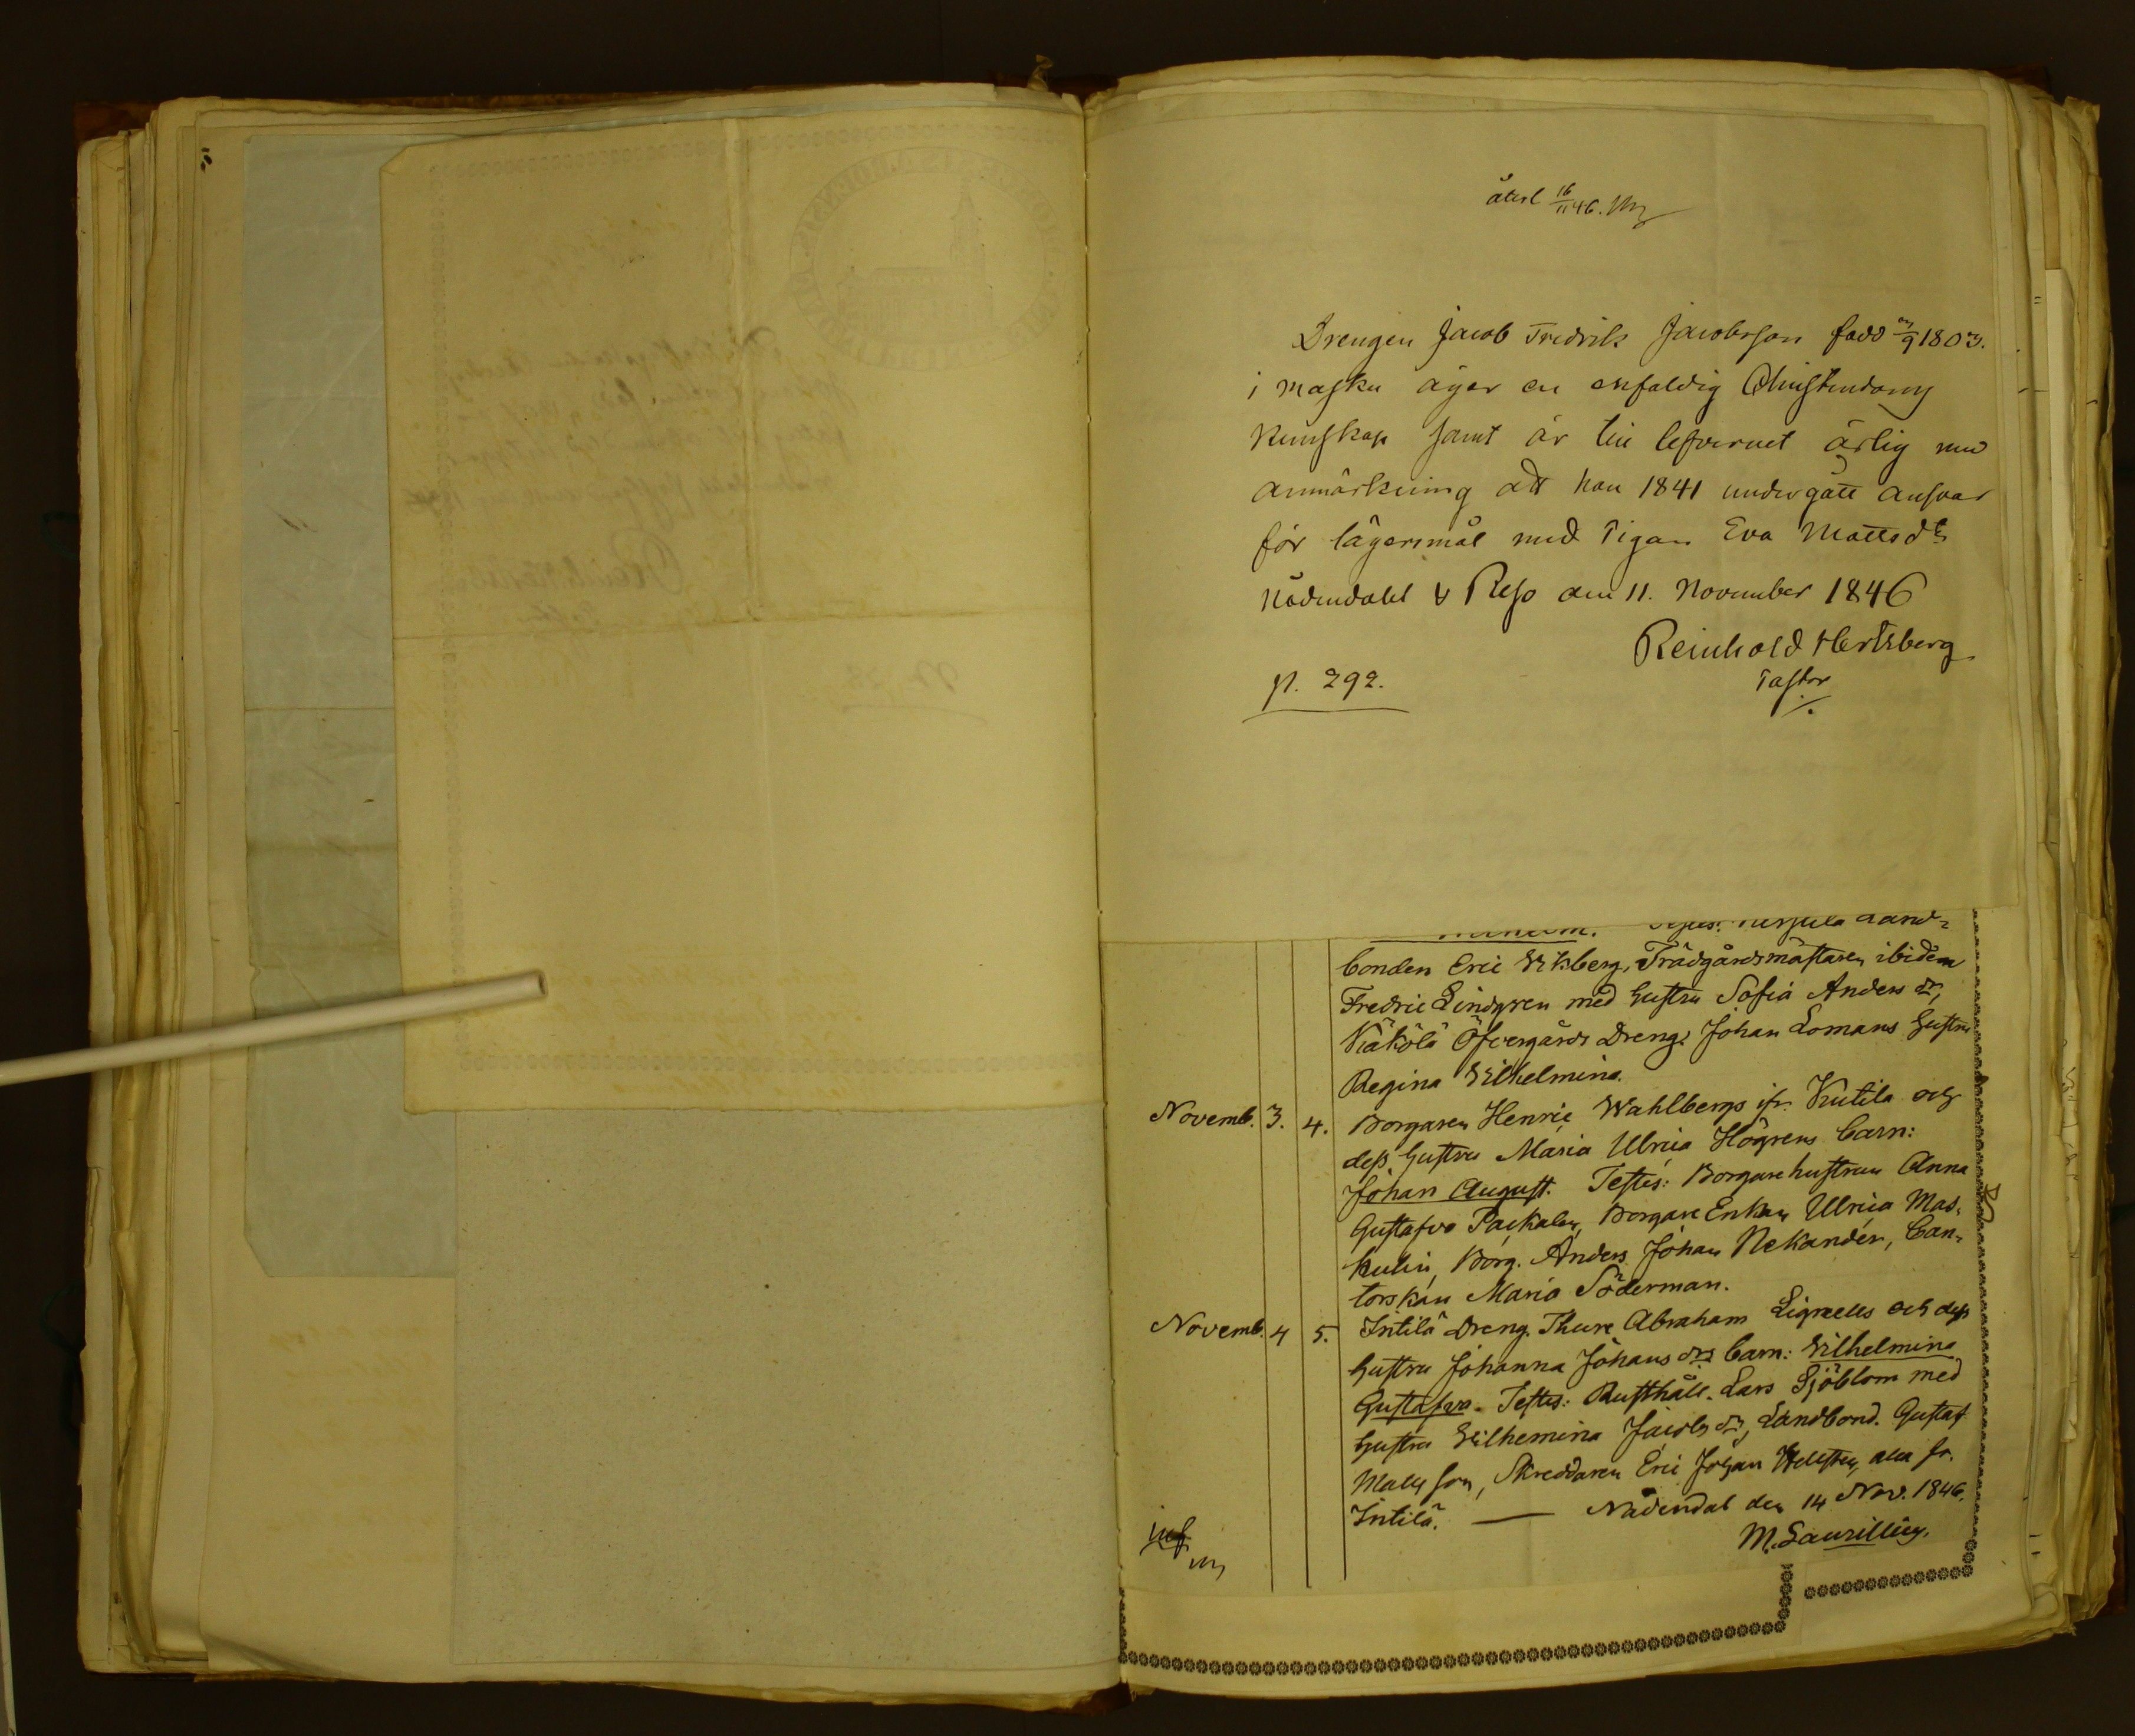 återl 16/11 46.
Drengen Jacob Fredrik Jacobsson född /9 1803.
i Masku äger en enfaldig Christendoms
kunskap samt är till lefvernet ärlig med
anmärkning att han 1841 undergått ansvar
för lägersmål med Pigan Eva Mattsdr
Nådendahl & Reso den 11. November 1846
Reinhold Hertsberg
Pastor
p. 292.
Land-
bonden Eric Wikberg, Trädgårdsmästaren ibidem
Fredric Lindgren med hustru Sofia Anders dr,
Kiäkölä Öfvergårds Dreng. Johan Lomans hustru
Regina Wilhelmina.
Novemb. 3. 4. Borgaren Henric Wahlbergs ifr. Kutila och
dess hustru Maria Ulrica Högrens barn:
Johan August. Testes: Borgarehustrun Anna
Gustafva Packalen, Borgare Enkan Ulrica Mas-
kulin, Borg. Anders Johan Nekander, Can-
torskan Maria Söderman.
Novemb. 4 5. Intilä Dreng. Thure Abraham Lignells och dess
hustru Johanna Johans drs barn: Wilhelmina
Gustafva. Testes: Rusthåll. Lars Sjöblom med
hustru Wilhemina Jacobs dr, Landbond. Gustaf
Matts son, Skreddaren Eric Johan Hellsten, alla fr.
Intilä. — Nådendal den 14 Nov. 1846.
M. Laurillius.